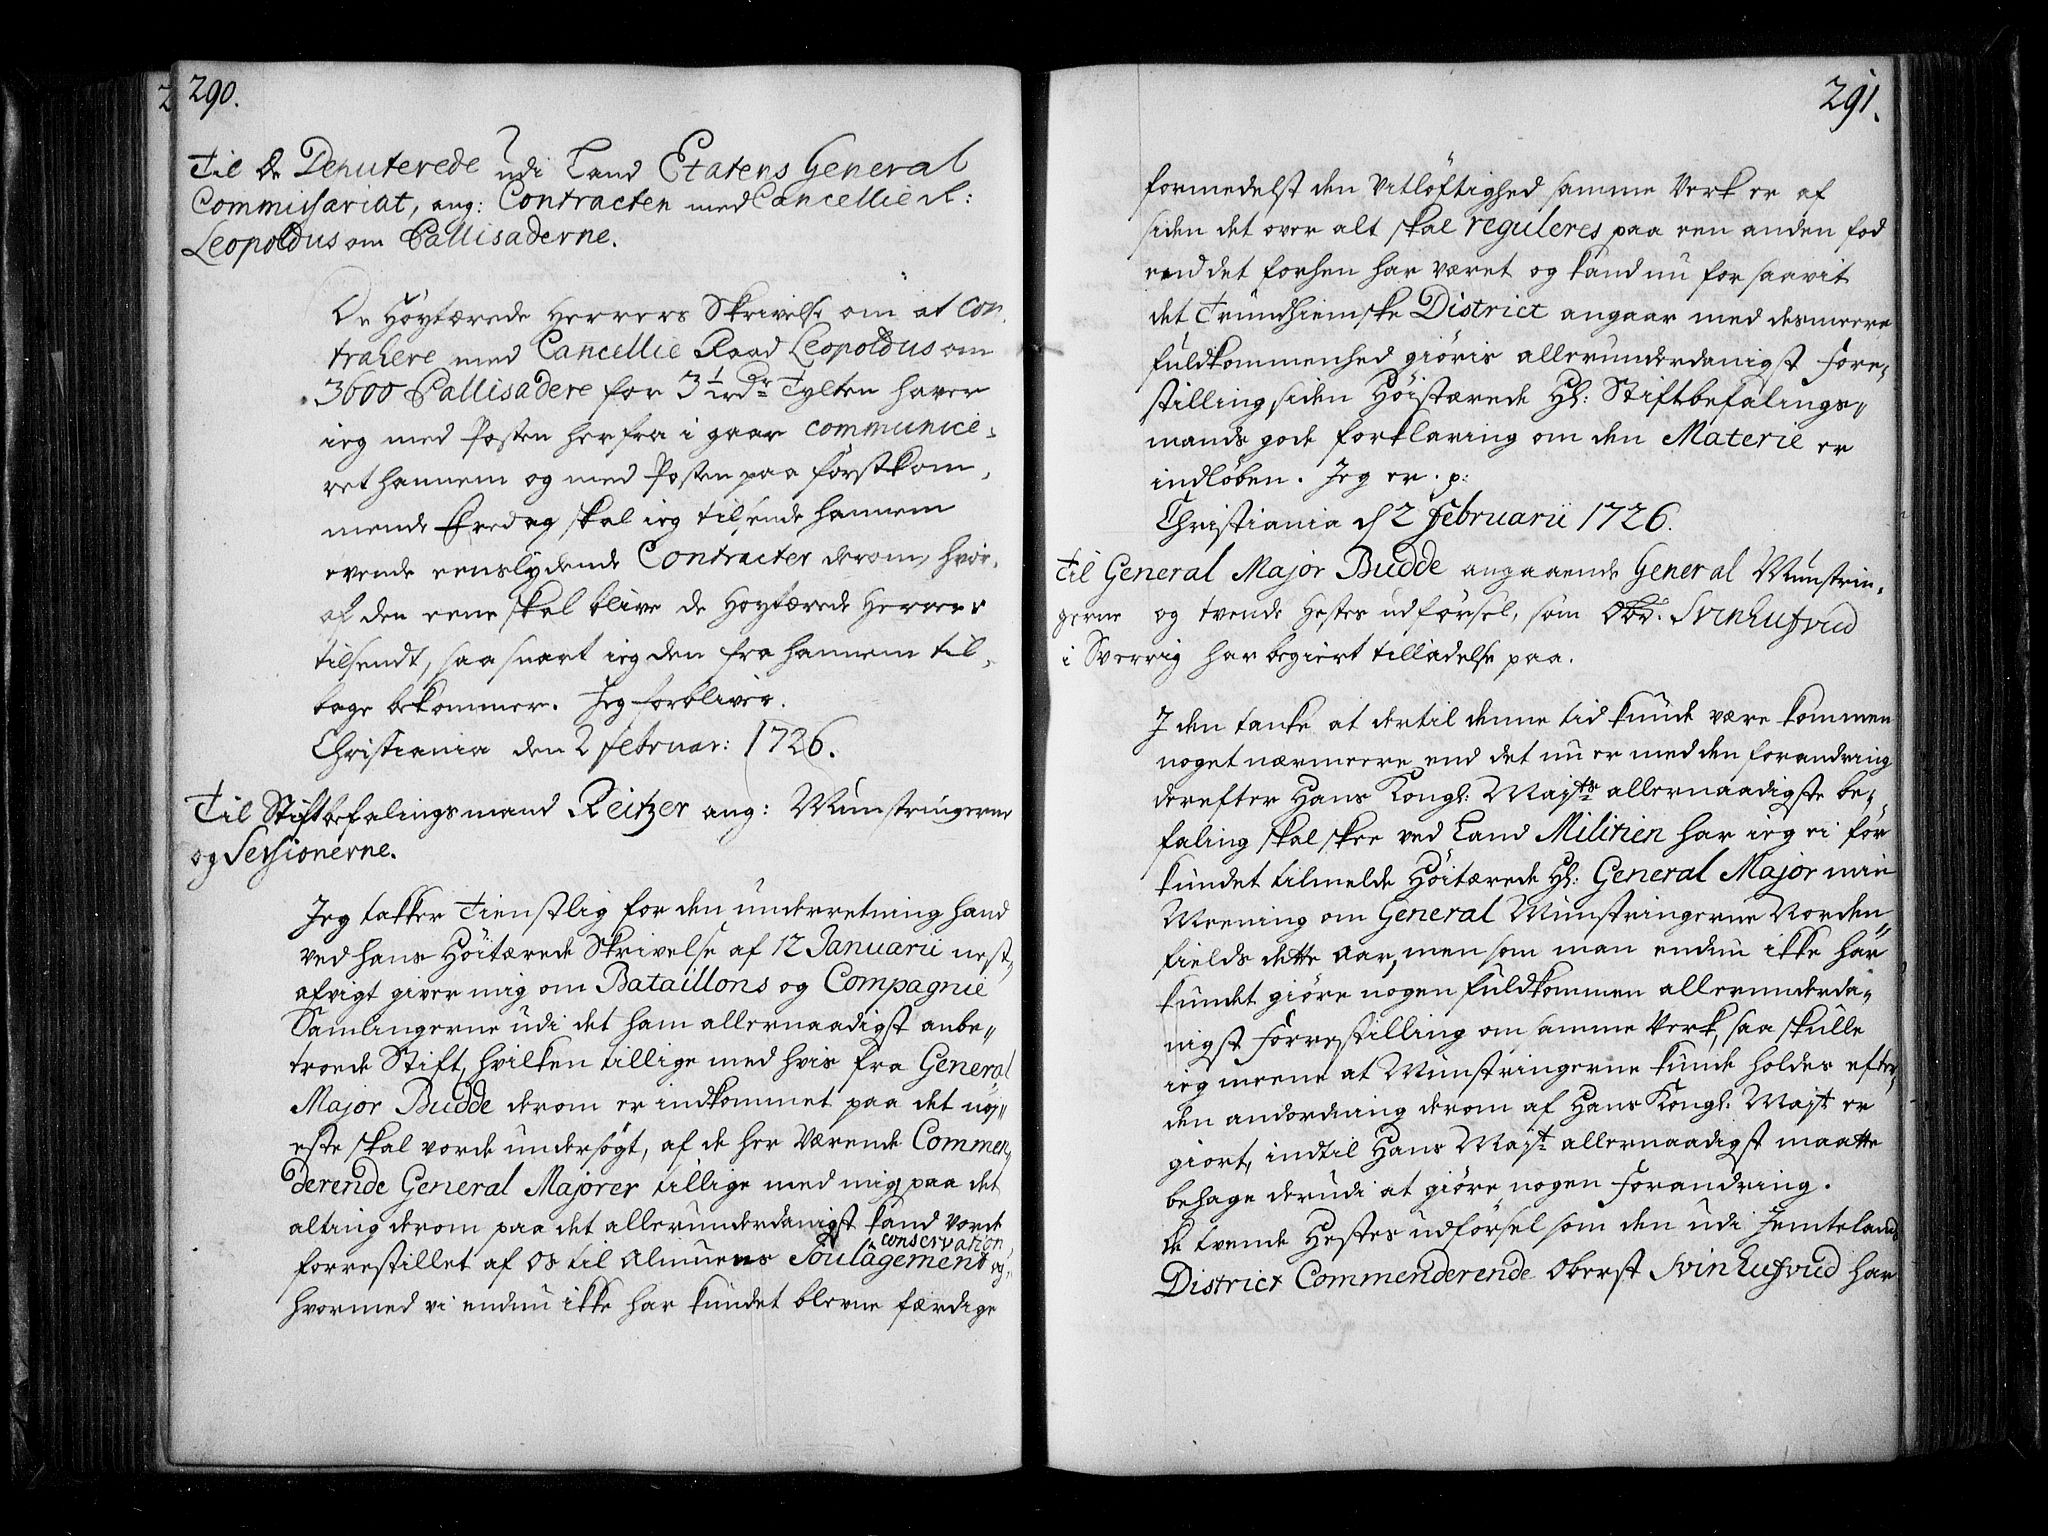 290.
Til de Deputerede udi Land Etatens General
Commissariat, ang: Contracten med Cancellie R:
Leopoldus om Pallisaderne.
De Höytærede Herrers Skrivelse om at con-
trahere med Cancellie Raad Leopoldus om
3600 Pallisadere for 3½ rdr Tylten haver
ieg med Posten herfra i gaar communice-
ret hannem og med Posten paa förstkom-
mende Fredag skal ieg tilsende hannem
tvende eenslydende Contracter derom, hvor-
af den eene skal blive de Höytærede Herrer
tilsendt, saa snart ieg den fra hannem til-
bage bekommer. Jeg forbliver.
Christiania den 2 Februar: 1726.
Til Stiftbefalingsmand Reitzer ang: Mynstringerne
og Sessionerne.
Jeg takker tienstlig for den underretning hand
ved hans Höitærede Skrivelse af 12 Januarii nest-
afvigt giver mig om Bataillons og Compagnie
Samlingerne udi det ham allernaadigst anbe-
troede Stift, hvilken tillige med hvis fra General
Major Budde derom er indkommet paa det nöy-
este skal vorde undersögt, af de her værende Commen-
derende General Majorer tillige med mig, paa det
alting derom paa det allerunderdanigst kand vorde
conservation
forrestillet af os til Almuens Soulagement og
hvormed vi endnu ikke har kundet blevne færdige
291.
formedelst den vitlöftighed samme Verk er af
siden det over alt skal reguleres paa een anden fod
end det forhen har været og kand nu for saavit
det Trundhiemske District angaar med desmeere
fuldkommenhed giöris allerunderdanigst Fore-
stilling siden Höistærede Hl: Stiftbefalings-
mands gode forklaring om den Materie er
indlöben. Jeg er. p:
Christiania d 2 Februarii 1726.
Til General Major Budde angaaende General Mynstrin-
gerne og tvende Hestes udförsel, som Obr. Svinhufvud
i Sverrig har begiert tilladelse paa.
I den tanke at der til denne tid kunde være kommen
noget nærmere end det nu er med den forandring
derefter Hans Kongl: Mayts allernaadigste be-
faling skal skee ved Land Militien har ieg ei för
kundet tilmelde Höitærede Hl: General Major min
Meening om General Mynstringerne Norden-
fields dette Aar, men som man endnu ikke har
kundet giöre nogen fuldkommen allerunderda-
nigst Forrestilling om samme Verk, saa skulle
ieg meene at Mynstringerne kunde holdes efter
den andordning derom af Hans Kongl: Mayt er
giort, indtil Hans Mayt allernaadigst maatte
behage derudi at giöre nogen Forandring.
De tvende Hestes udförsel som den udi Jemtelands
District Commenderende Oberst Svinhufvud har